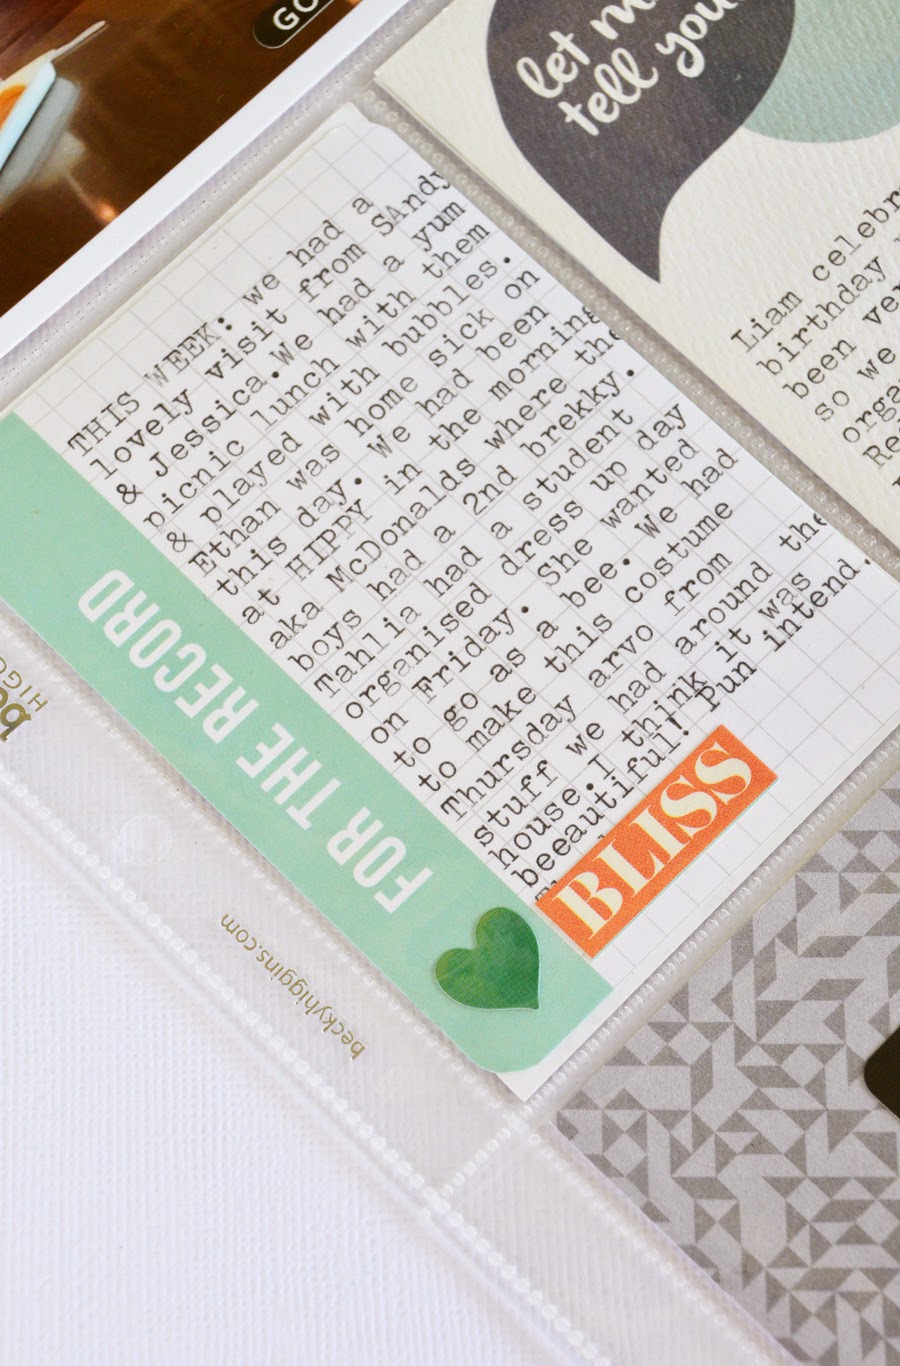 GO
let m
tell you
Liam celebr
birthday
been ver
so we
orga
Re
THIS WEEK: we had a
lovely visit from SAndy
& Jessica.We had a yum
picnic lunch with them
& played with bubbles.
Ethan was home sick on
this day. We had been
at HIPPY in the morning
aka McDonalds where the
boys had a 2nd brekky.
Tahlia had a student
organised dress up day
on Friday. She wanted
to go as a bee. We had
to make this costume
Thursday arvo from
stuff we had around the
house.I think it was
beeautiful! Pun intend.
BLISS
FOR THE RECORD
be
HIGG
beckyhiggins.com